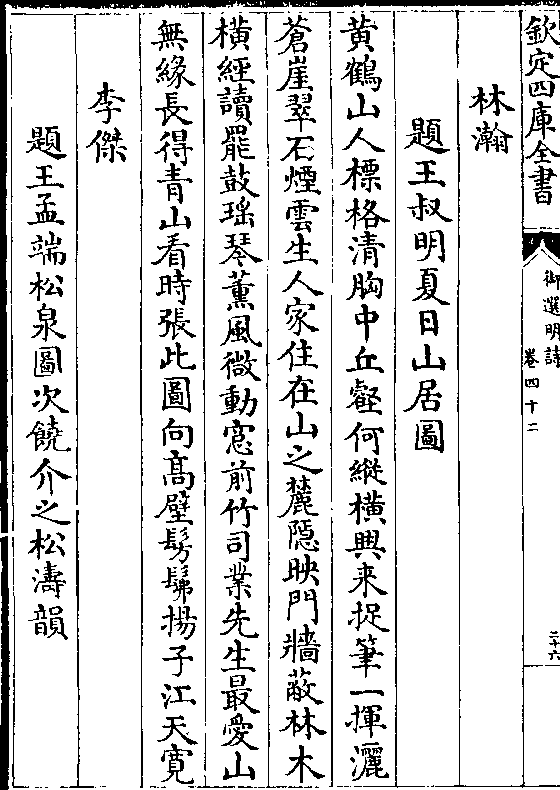 欽定四庫全書
御選明詩
卷四十二
三十六
林瀚
題王叔明夏日山居圖
黄鶴山人標格清胸中丘壑何縱横興来捉筆一揮灑
蒼崖翠石煙雲生人家住在山之麓隠映門牆蔽林木
横經讀罷鼓瑶琴薰風微動窻前竹司業先生最愛山
無緣長得青山看時張此圖向髙壁髣髴揚子江天寛
李傑
題王孟端松泉圖次饒介之松濤韻